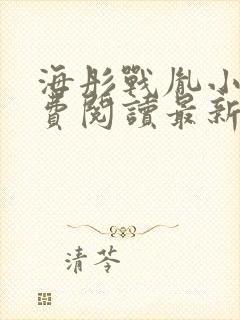 海彤戰胤小
費閱讀最新
清苓